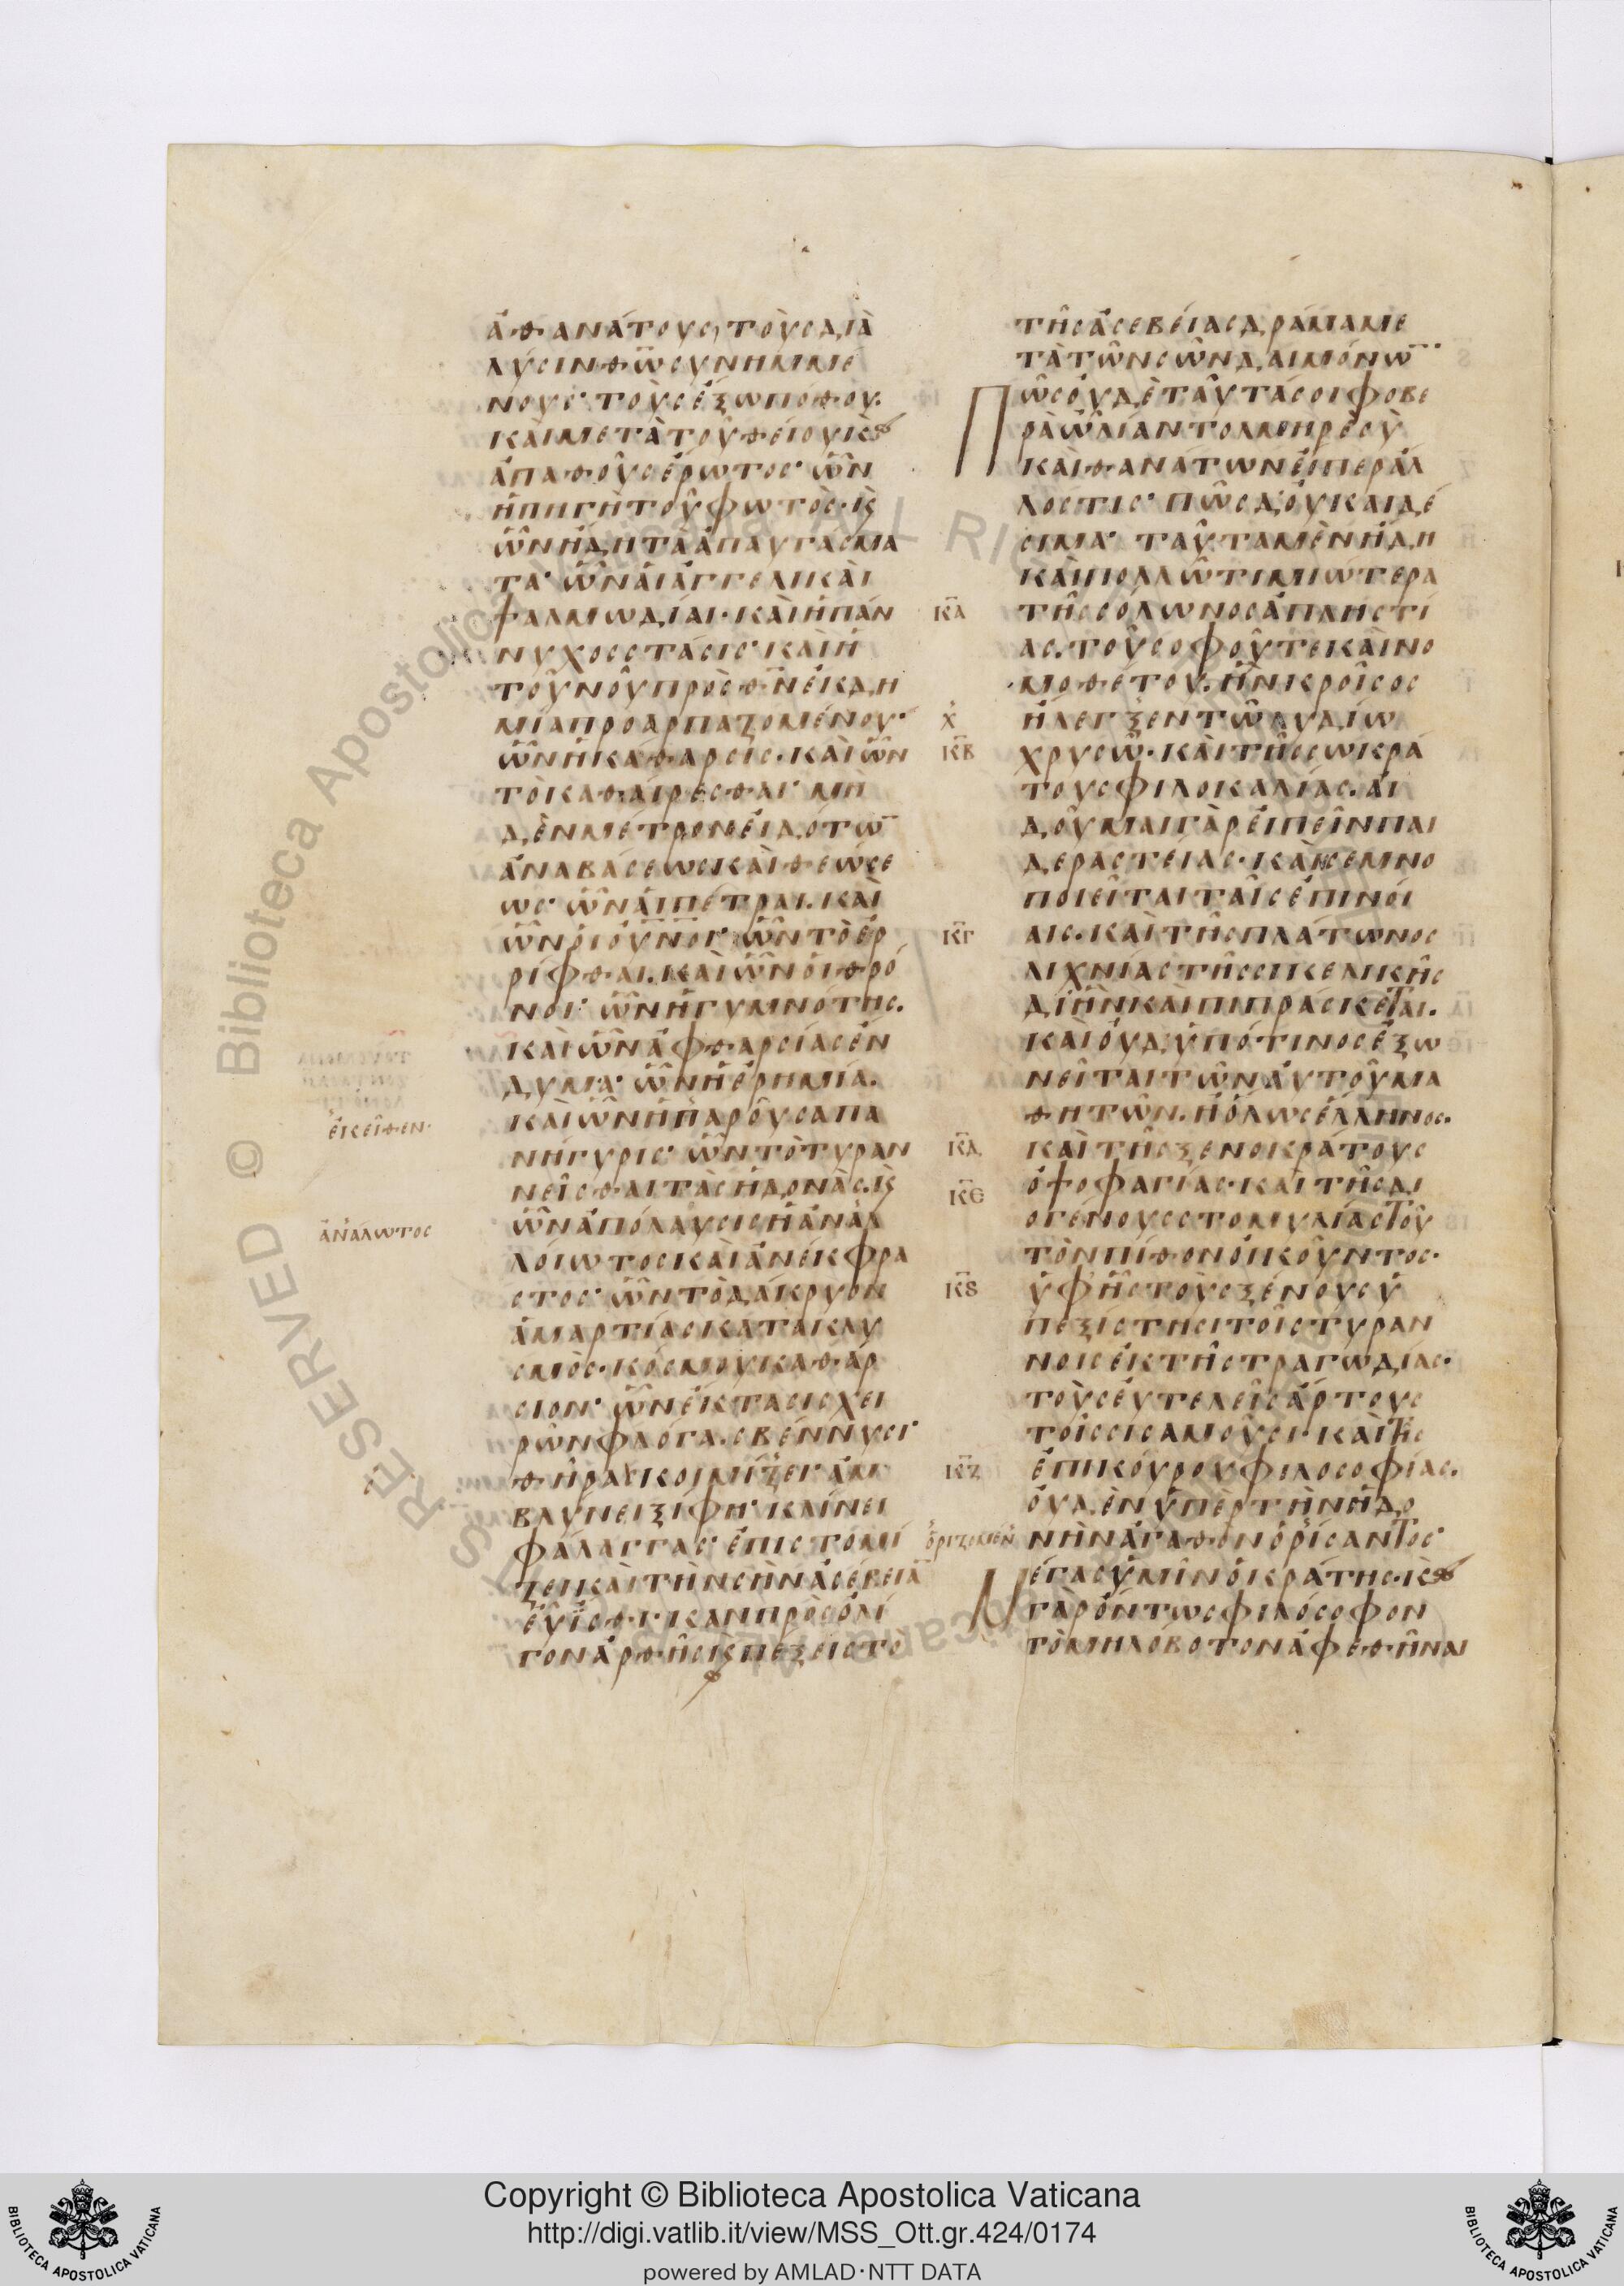 ἀθανάτους, τοὺς διὰ
λύσιν θω̅ συνημμέ
νους· τοὺς ἔξω πόθου.
καὶ μετὰ τοῦ θείου κ(αὶ)
ἀπαθοῦς ἔρωτος· ὧν
ἡ πηγὴ τοῦ φωτός· κ(αὶ)
ὧν ἤδη τὰ ἀπαυγάσμα
τα· ὧν αἱ ἀγγελικαὶ
ψαλμωδίαι· καὶ ἡ πάν
νυχος στάσις· καὶ ἡ
τοῦ νοῦ πρὸς θ̅ν̅ ἐκδη
μία προαρπαζομένου·
ὧν ἡ κάθαρσις· καὶ ὧν
τὸ καθαίρεσθαι· μη
δὲν μέτρον εἰδότω̅
ἀναβάσεως καὶ θεώσε
ως· ὧν αἱ πέτραι. καὶ
ὧν οἱ ο̅υ̅ν̅ο̅ι̅· ὧν τὸ ἐρ
ρίφθαι. καὶ ὧν οἱ θρό
νοι· ὧν ἡ γυμνότης.
καὶ ὧν ἀφθαρσίας ἔν
δυμα· ὧν ἡ ἐρημία.
καὶ ὧν ἡ παροῦσα πα
νήγυρις· ὧν τὸ τυραν
νεῖσθαι τὰς ἡδονάς. κ(αὶ)
ὧν ἀπόλαυσις ἡ ἀναλ
λοίωτος καὶ ἀνέκφρα
στος· ὧν τὸ δάκρυον
ἁμαρτίας κατακλυ
σμός· κόσμου καθάρ
σιον· ὧν ἔκτασις χει
ρῶν φλόγα σβέννυσι·
θῆρας κοιμίζει· ἀμ
βλύνει ξίφη· κλίνει
φάλαγγας· ἐπιστομί
ζει καὶ τὴν σὴν ἀσέβεια̅
εὖ ἴσθι· κἂν πρὸς ὀλί
γον ἀρθῇς κ(αὶ) παίξεις τὸ
ἐκεῖθεν·
ἀνάλωτος
τῆς ἀσεβείας δρᾶμα με
τὰ τῶν σῶν δαιμόνω̅
Πῶς οὐδὲ ταῦτά σοι φοβε
ρὰ ὦ λίαν τολμηρὲ σὺ
καὶ θανάτων εἴπερ ἄλ
λος τις· πῶς δ' οὐκ αἰδέ
σιμα· ταῦτα μὲν ἤδη
καὶ πολλῷ τιμιώτερα
κ̅α̅ τῆς σόλωνος ἀπληστί
ας. τοῦ σοφοῦ τε καὶ νο
μοθέτου. ἣν κροῖσος
χ ἤλεγξεν τῷ λυδίω
κ̅β̅ χρυσῷ· καὶ τῆς σωκρά
τους φιλοκαλίας. αἰ
δοῦμαι γὰρ εἰπεῖν παι
δεραστείας· κἂν σεμνο
ποιεῖται ταῖς ἐπινοί
κ̅γ̅ αις· καὶ τῆς πλάτωνος
λιχνίας τῆς σικελικῆς
δι' ἣν καὶ πιπράσκεται.
καὶ οὐδ' ὑπό τινος ἐξω
νεῖται τῶν αὐτοῦ μα
θητῶν. ἢ ὅλως ἕλληνος.
κ̅δ̅ καὶ τῆς ξενοκράτους
κ̅ε̅ ὀψοφαγίας· καὶ τῆς δι
ογένους στομυλίας τοῦ
τὸν πίθον οἰκοῦντος·
κ̅ϛ̅ ὑφ' ἧς τοὺς ξένους ὑ
πεξίστησι τοῖς τυραν
νοις ἐκ τῆς τραγωδίας·
τοὺς εὐτελεῖς ἄρτους
τοῖς σισαμοῦσι· καὶ τῆς
κ̅ζ̅ ἐπικούρου φιλοσοφίας.
οὐδὲν ὑπὲρ τὴν ἡδο
νὴν ἀγαθὸν ὁρίσαντος·
Μέγας ὑμῖν ὁ κράτης· κ(αὶ)
γὰρ ὄντως φιλόσοφον
τὸ μηλόβοτον ἀφεθῆναι
Copyright © Biblioteca Apostolica Vaticana
http://digi.vatlib.it/view/MSS_Ott.gr.424/0174
powered by AMLAD·NTT DATA
BIBLIOTECA APOSTOLICA VATICANA
BIBLIOTECA APOSTOLICA VATICANA